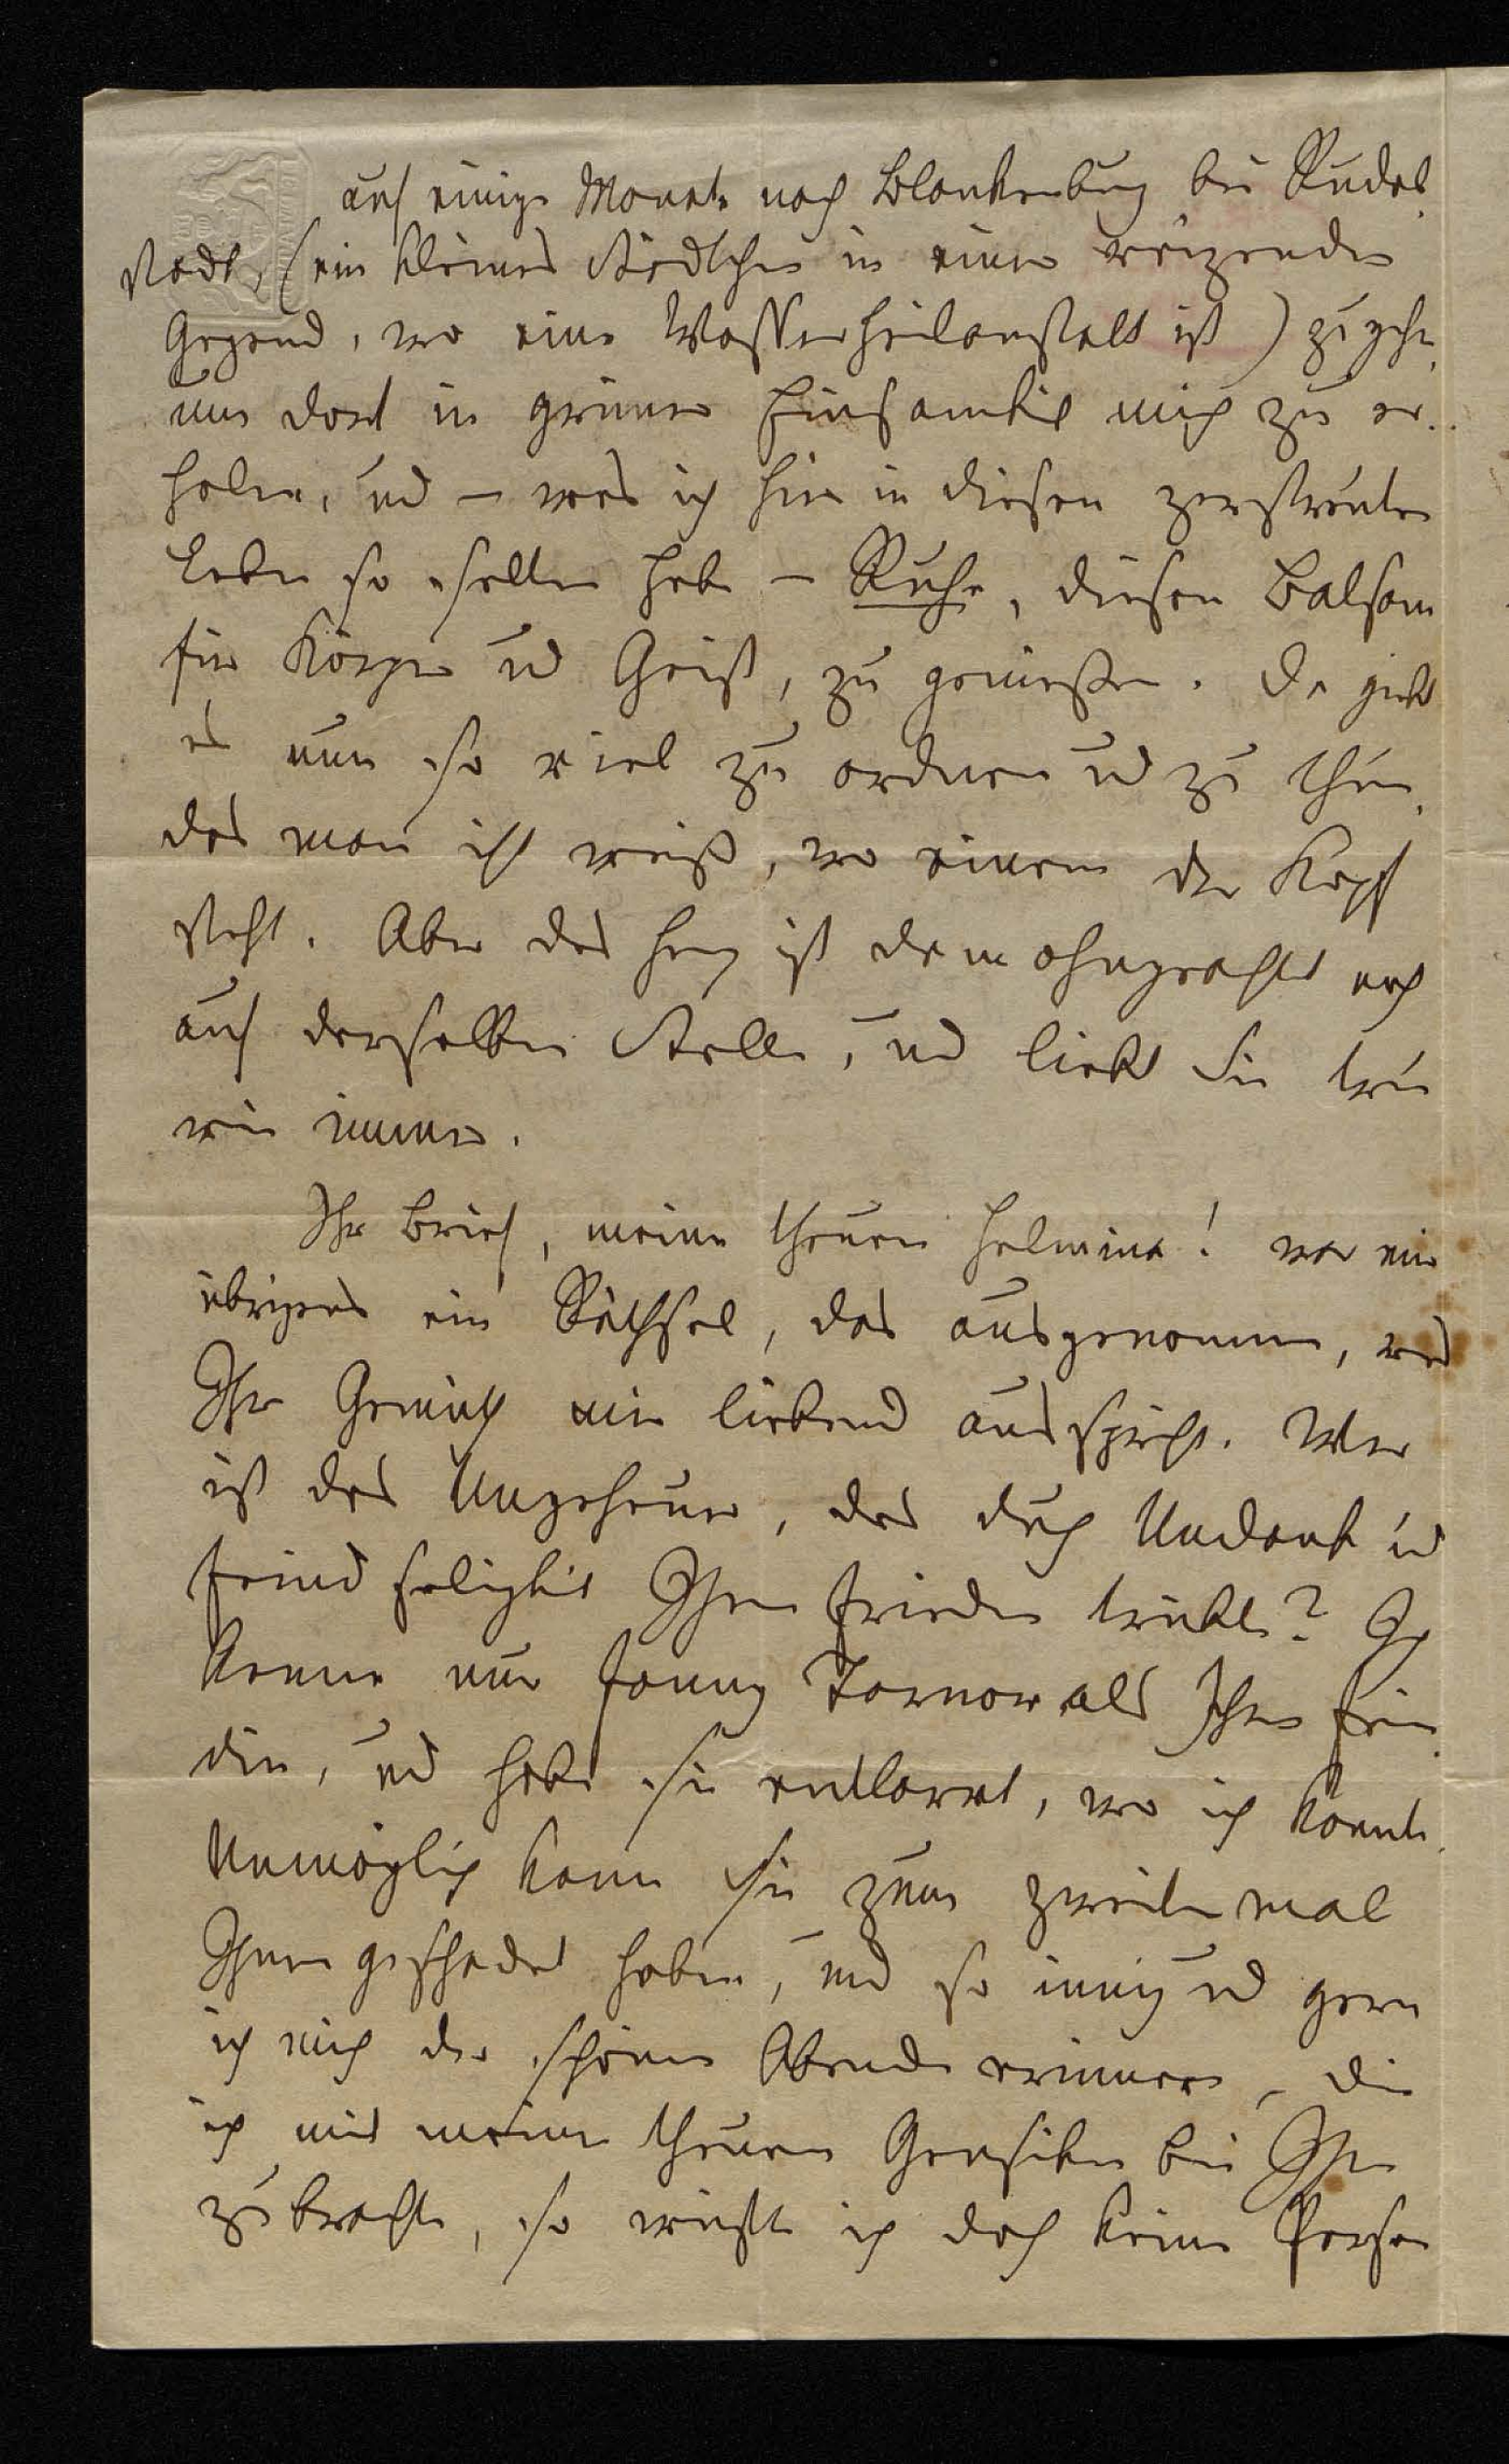 auf einige Monate nach Blankenburg bei Rudol
stadt, (ein kleines Städtchen in einer reizenden
Gegend, wo eine Wasserheilanstalt ist) zu gehn,
um dort in grüner Einsamkeit mich zu er-
holen, und – was ich hier in diesem zerstreuten
Leben so selten habe – Ruhe, diesen Balsam
für Körper und Geist, zu genießen. Da giebt
es nun so viel zu ordnen und zu thun,
das man oft weiß, wo einem der Kopf
steht. Aber das Herz ist demohngeachtet noch
auf derselben Stelle, und liebt Sie treu
wie immer.
Ihr Brief, meine theure Helmina! war mir
übrigens ein Räthsel, das ausgenommen, was
Ihr Gemüth mir liebend ausspricht. Wer
ist das Ungeheuer, das durch Undank und
Feindseligkeit Ihren Frieden trübte? Ich
kenne nur Fanny Tarnow als Ihre Fein
din, und habe sie entlarvt, wo ich konnte.
Unmöglich kann sie zum zweitenmal
Ihnen geschadet haben, und so innig und gern
ich mich der schönen Abende erinnere, die
ich mit meiner theuren Gensiken bei Ihnen
zubrachte, so wüßte ich doch keine Person